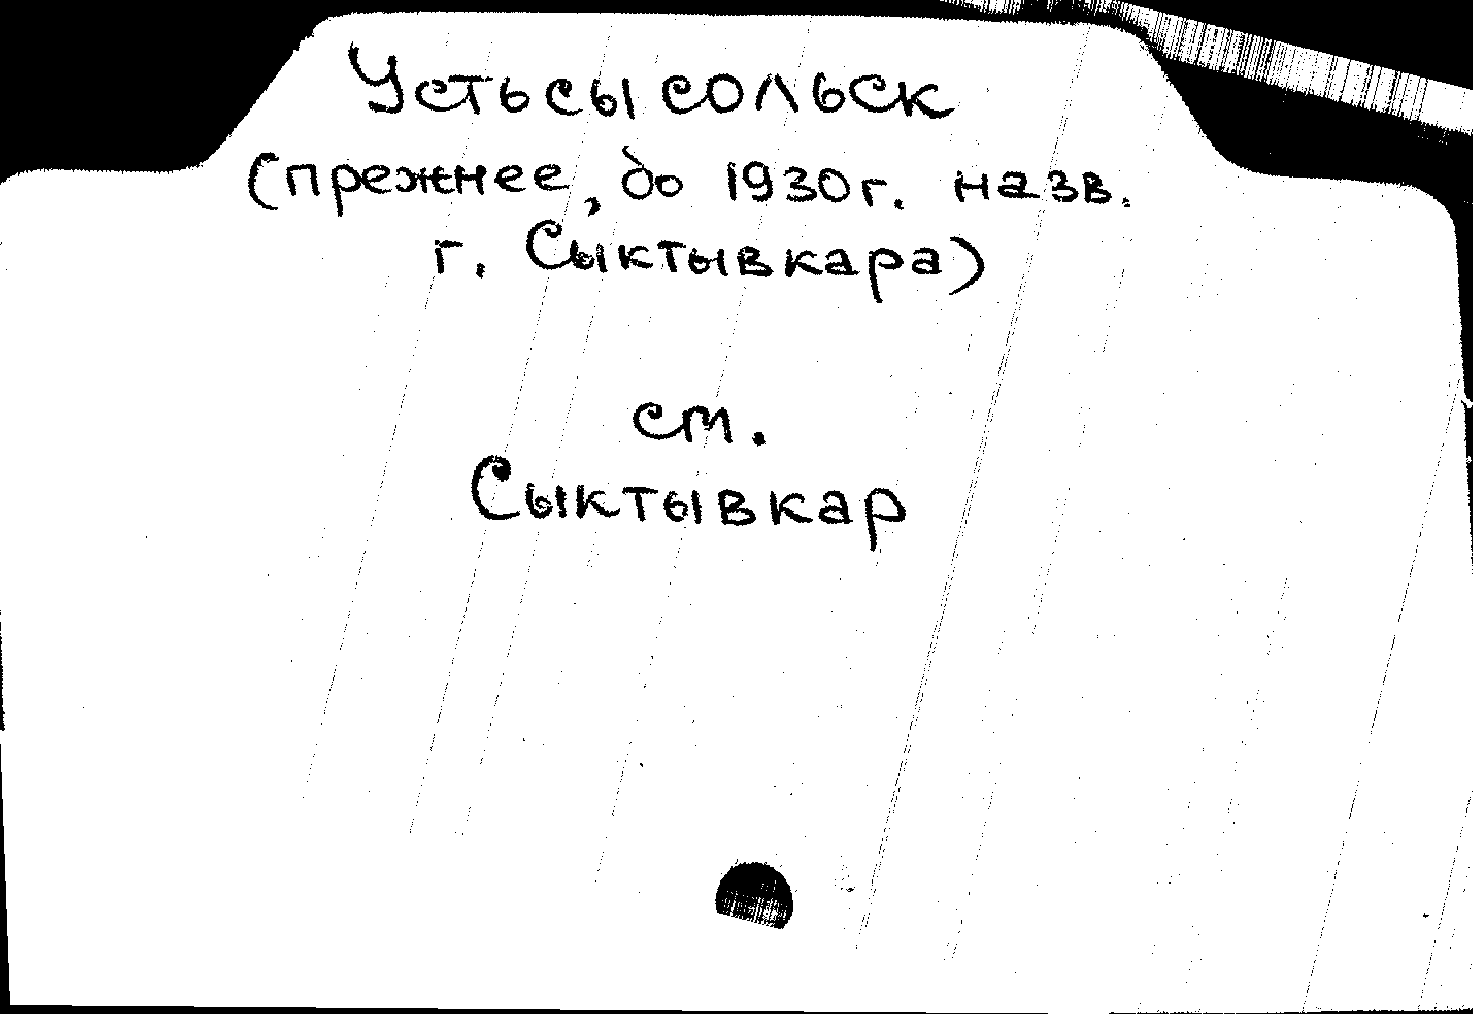 Устьсысольск
(прежнее, до 1930г. назв.
г. Сыктывкара)
ст.
Сыктывкар